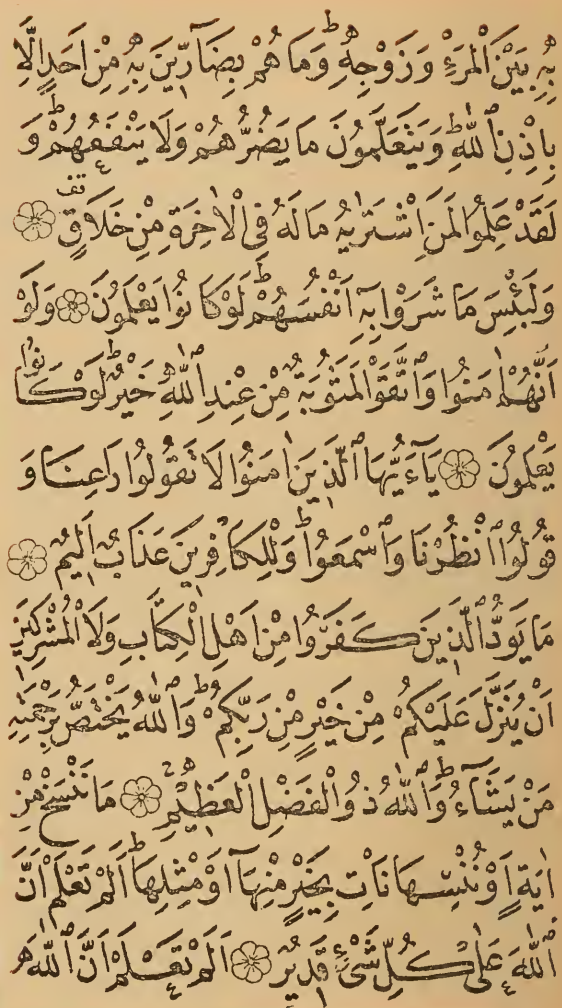 بِهِ بَيْنَ الْمَرْءِ وَزَوْجِهِ ۗ وَمَا هُمْ بِضَآرِّينَ بِهِ مِنْ اَحَدٍ اِلَّا
بِاِذْنِ اللّٰهِ ۗ وَيَتَعَلَّمُونَ مَا يَضُرُّهُمْ وَلَا يَنْفَعُهُمْ ۗ وَ
لَقَدْ عَلِمُوا لَمَنِ اشْتَرٰيهُ مَا لَهُ فِى الْاٰخِرَةِ مِنْ خَلَاقٍ ۝
وَلَبِئْسَ مَا شَرَوْا بِهِٓ اَنْفُسَهُمْ ۗ لَوْ كَانُوا يَعْلَمُونَ ۝ وَلَوْ
اَنَّهُمْ اٰمَنُوا وَاتَّقَوْا لَمَثُوبَةٌ مِنْ عِنْدِ اللّٰهِ خَيْرٌ ۗ لَوْ كَانُوا
يَعْلَمُونَ ۝ يَآءَيُّهَا الَّذِينَ اٰمَنُوا لَا تَقُولُوا رَاعِنَا وَ
قُولُوا انْظُرْنَا وَاسْمَعُوا ۗ وَلِلْكَافِرِينَ عَذَابٌ اَلِيمٌ ۝
مَا يَوَدُّ الَّذِينَ كَفَرُوا مِنْ اَهْلِ الْكِتَابِ وَلَا الْمُشْرِكِينَ
اَنْ يُنَزَّلَ عَلَيْكُمْ مِنْ خَيْرٍ مِنْ رَبِّكُمْ ۗ وَاللّٰهُ يَخْتَصُّ بِرَحْمَتِهِ
مَنْ يَشَآءُ ۗ وَاللّٰهُ ذُو الْفَضْلِ الْعَظِيمِ ۝ مَا نَنْسَخْ مِنْ
اٰيَةٍ اَوْ نُنْسِهَا نَاْتِ بِخَيْرٍ مِنْهَآ اَوْ مِثْلِهَا ۗ اَلَمْ تَعْلَمْ اَنَّ
اللّٰهَ عَلٰى كُلِّ شَىْءٍ قَدِيرٌ ۝ اَلَمْ تَعْلَمْ اَنَّ اللّٰهَ